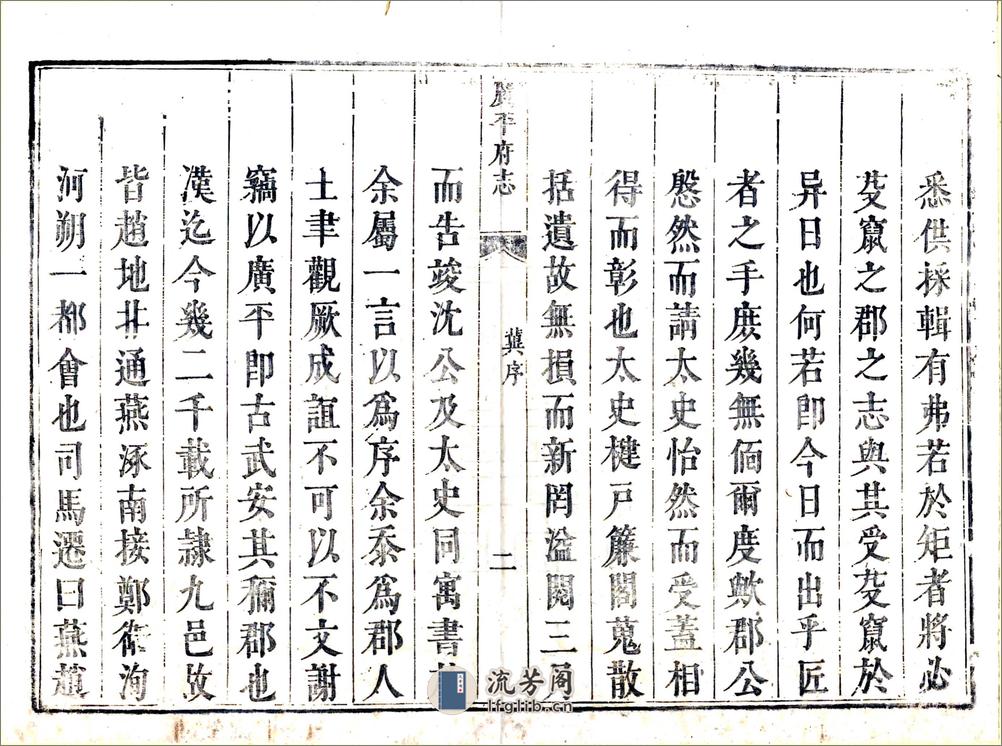 悉供採輯有弗若於矩者將必
芟竄之郡之志與其受芟竄於
异日也何若卽今日而出乎匠
者之手庶幾無偭爾度歟郡公
慇然而請太史怡然而受蓋相
得而彰也太史楗戸簾閣蒐散
括遺故無損而新罔溢閱三
廣平府志
冀序
二
而告竣沈公及太史同寓書
余屬一言以爲序余忝爲郡人
士聿觀厥成誼不可以不文謝
竊以廣平卽古武安其稱郡也
漢迄今幾二千載所隷九邑故
皆趙地北通燕涿南接鄭衛洵
河朔一都會也司馬遷曰燕趙
流芳阁
lfglib.cn